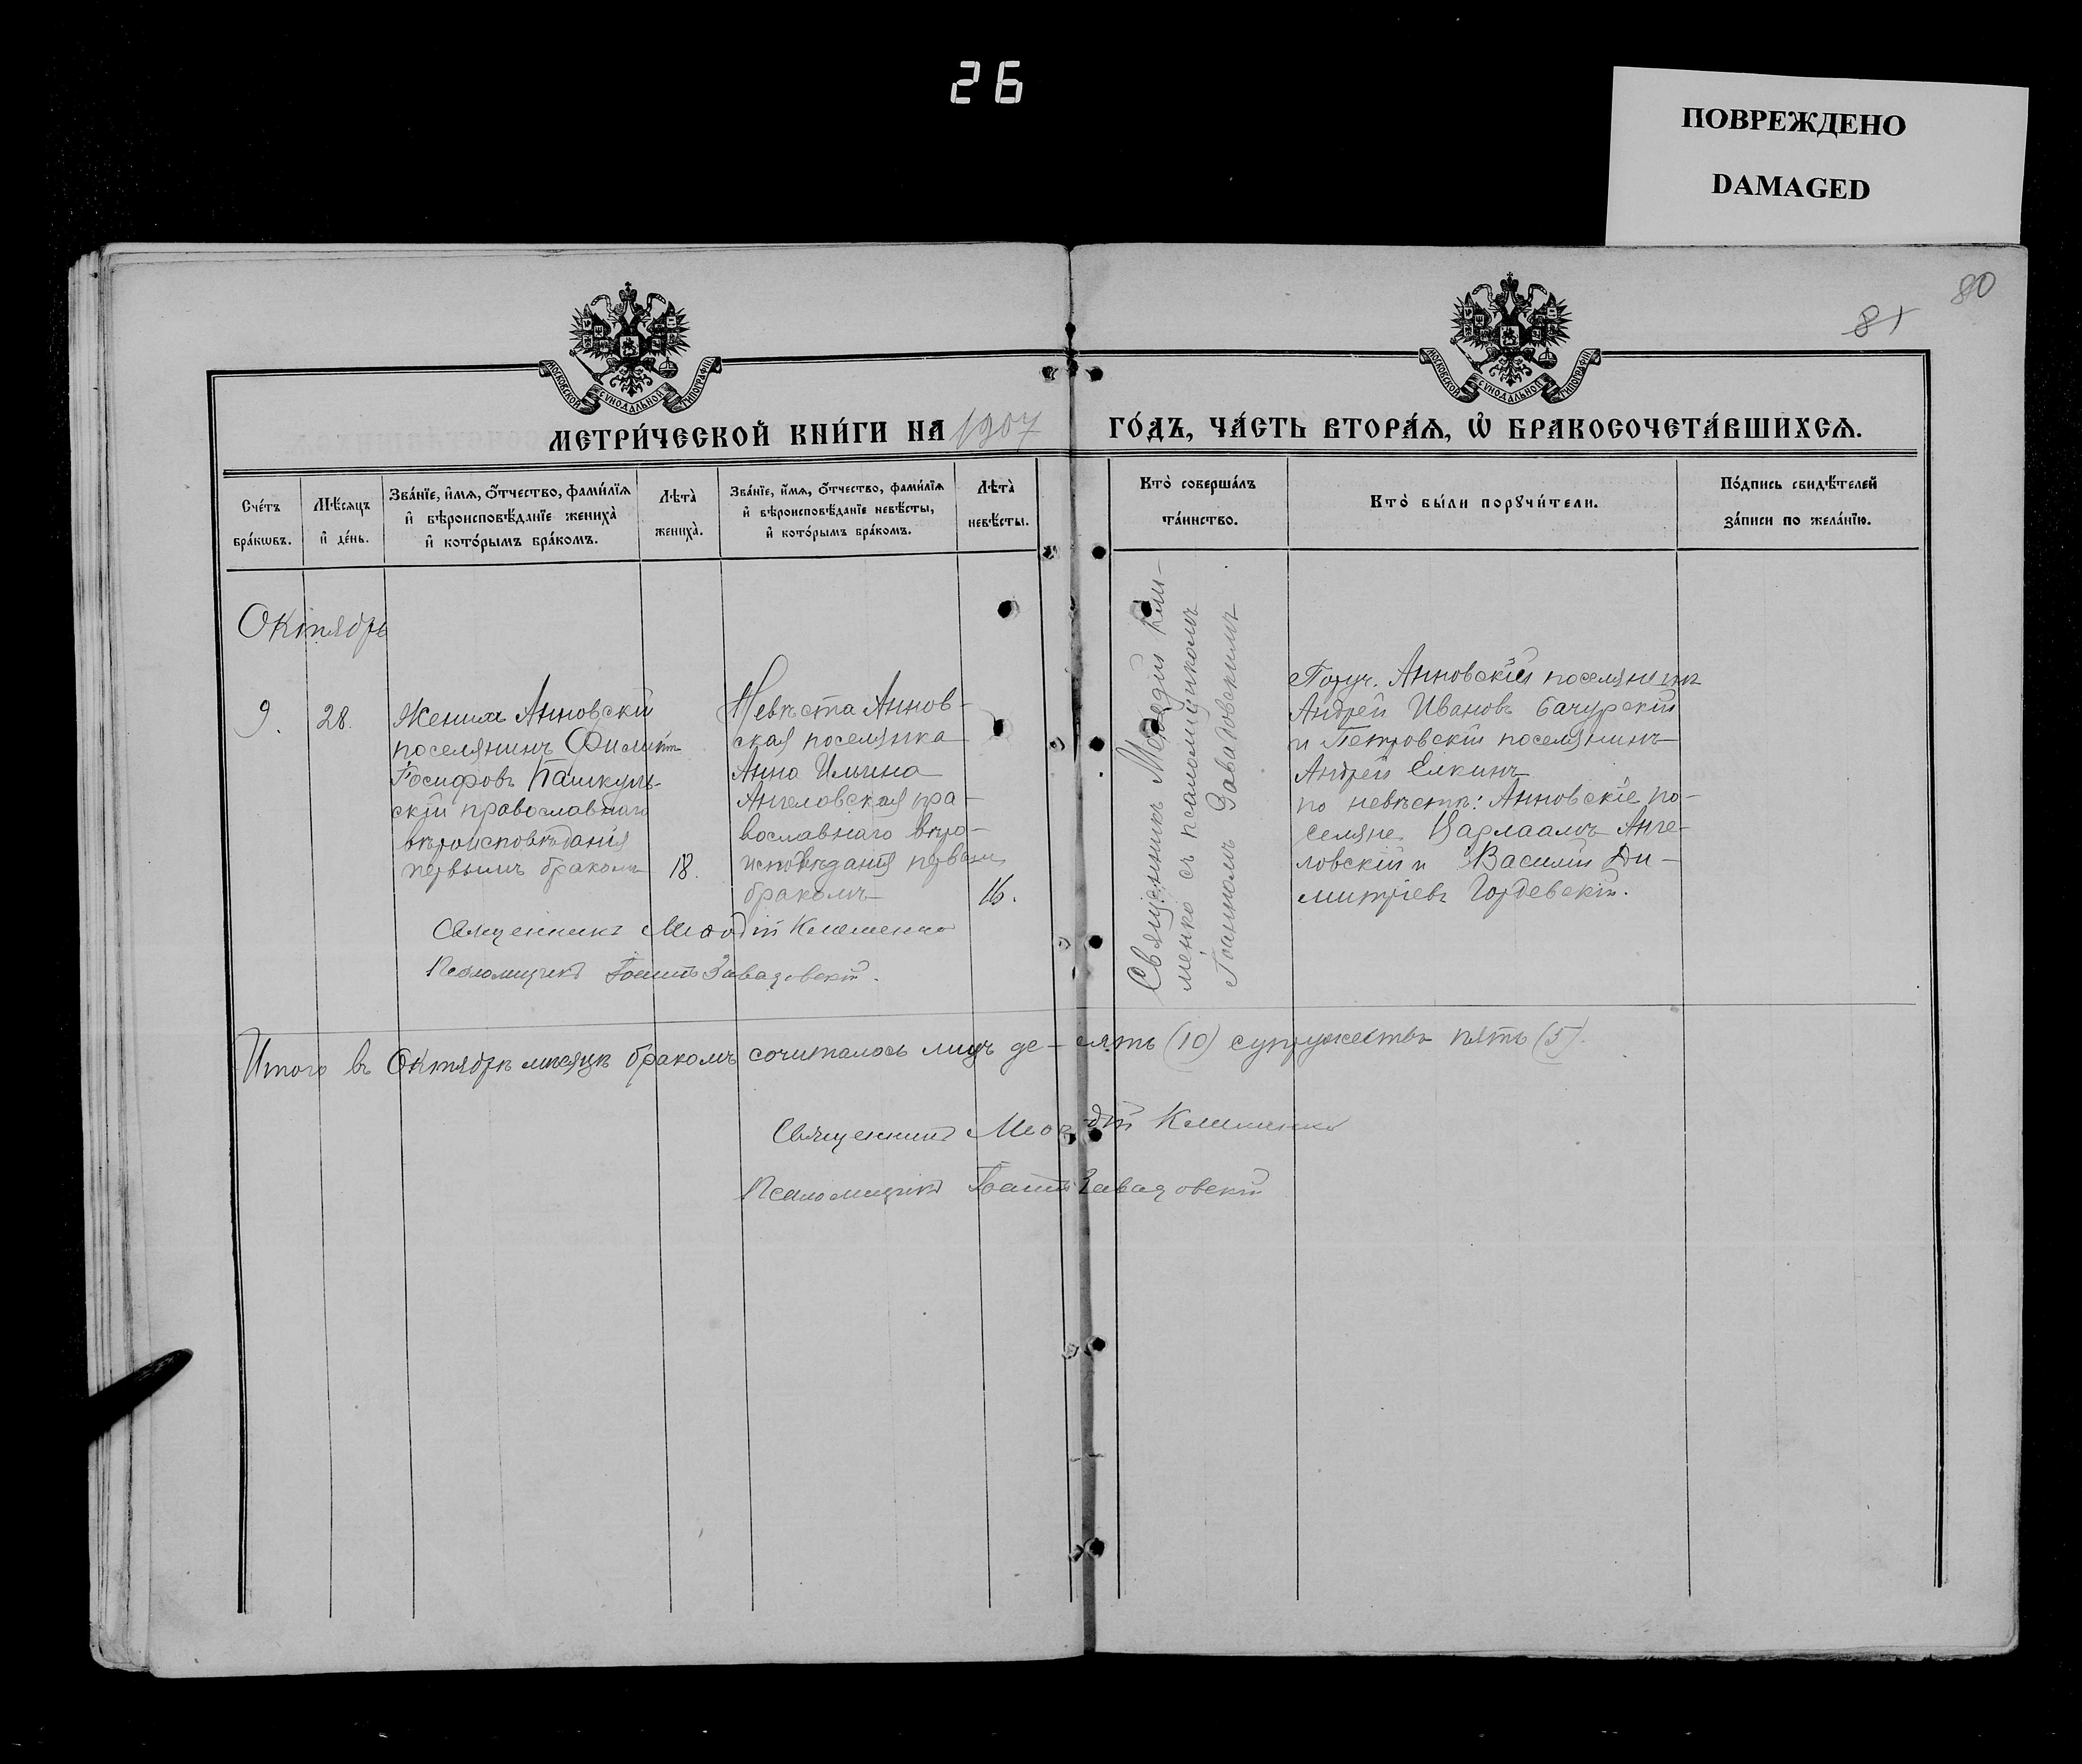 26
ПОВРЕЖДЕНО
DAMAGED
80
81
МОСКОВСКОЙ СѴНОДАЛЬНОЙ ТИПОГРАФІИ
МОСКОВСКОЙ СѴНОДАЛЬНОЙ ТИПОГРАФІИ
МЕТРИ́ЧЕСКОЙ КНИ́ГИ НА 1907 ГО́ДЪ, ЧА́СТЬ ВТОРА́Ѧ, Ѡ БРАКОСОЧЕТА́ВШИХСѦ.
Сче́тъ
бра́кѡвъ.
Мѣ́сѧцъ
и҆ де́нь.
Зва́нїе, и҆́мѧ, ѻ҆́тчество, фами́лїѧ
и҆ вѣроисповѣ́данїе жениха̀
и҆ кото́рымъ бра́комъ.
Лѣта̀
жениха̀.
Зва́нїе, и҆́мѧ, ѻ҆́тчество, фами́лїѧ
и҆ вѣроисповѣ́данїе невѣ́сты,
и҆ кото́рымъ бра́комъ.
Лѣта̀
невѣ́сты.
Кто̀ соверша́лъ
та́инство.
Кто̀ бы́ли порꙋчи́тели.
По́дпись свидѣ́телей
за́писи по жела́нїю.
Октябрь
9.
28.
Женихъ Анновскій
поселянинъ Филиппъ
Іосифовъ Пашкуль-
скій православнаго
вѣроисповѣданія
первымъ бракомъ
18.
Невѣста Аннов-
ская поселянка
Анна Ильина
Ангеловская пра-
вославнаго вѣро-
исповѣданія первымъ
бракомъ
16.
Священникъ Меѳодій Кли-
менко съ псаломщикомъ
Іоанномъ Завадовскимъ
Поруч. Анновскій поселянинъ
Андрей Ивановъ Бачурскій
и Петровскій поселянинъ
Андрей Елкинъ
по невѣстѣ: Анновскіе по-
селяне Варлаамъ Анге-
ловскій и Василій Ди-
митріевъ Гордевскій.
Священникъ Меѳодій Клименко
Псаломщикъ Іоаннъ Завадовскій.
Итого въ Октябрѣ мѣсяцѣ бракомъ сочиталось лицъ де-сять (10) супружествъ пять (5).
Священникъ Меѳодій Клименко
Псаломщикъ Іоаннъ Завадовскій